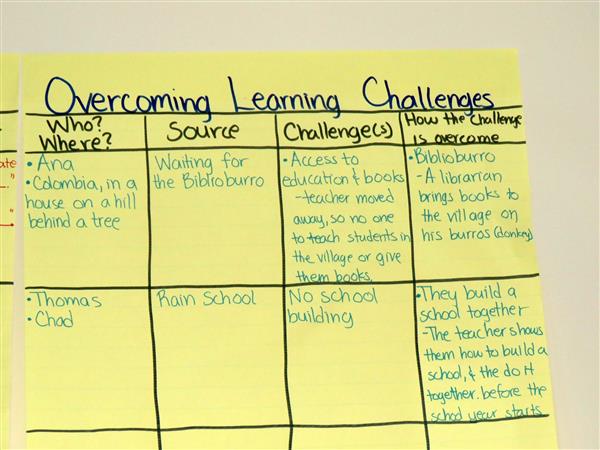 Overcoming Learning Challenges
Who?
Where?
Source
Challenge(s)
How the Challenge
is overcome
• Ana
• Colombia, in a
house on a hill
behind a tree
Waiting for
the Biblioburro
• Access to
education & books
- teacher moved
away, so no one
to teach students in
the village or give
them books.
• Biblioburro
- A librarian
brings books to
the village on
his burros (donkey)
• Thomas
• Chad
Rain School
No school
building
• They build a
school together
- The teacher shows
them how to build a
school, & the do it
together. before the
school year starts
ate